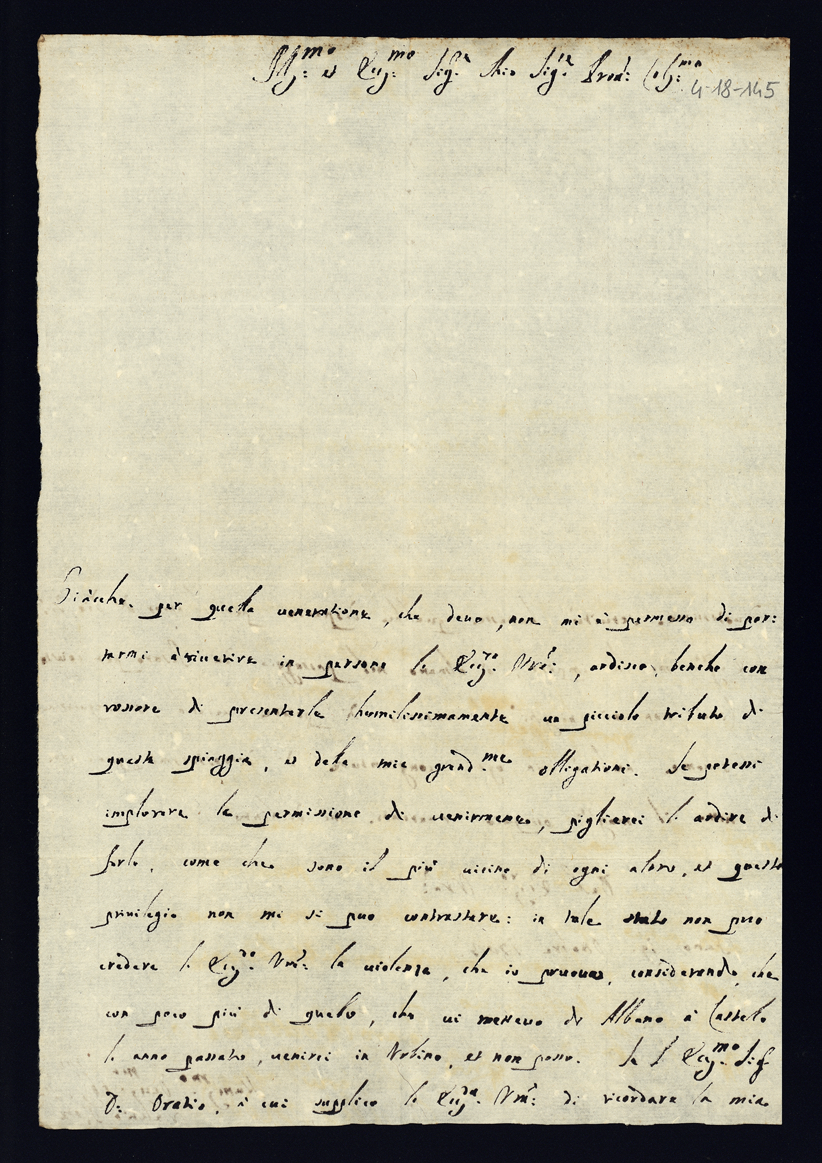 Ill:mo et Ecc:mo Sig.r Mio Sig.r Pron: Col:mo
4-18-145
Giache per quella ueneratione, che deuo, non mi è permesso di por:
tarmi à riuerire in persona l' Ecc:za Vra:, ardisco, benche con
rossore di presentarle humilissimamente un picciolo tributo di
queste spiaggie, et dela mia grand:me obligationi. Se potessi
implorare la permissione di uenirmene, pigliarei l' ardire di
farlo, come che sono il più uicino di ogni altro, et questo
priuilegio non mi si puo contrastare: in tale stato non puo
credere l' Ecc:za Vra: la uiolenza, che io prouo, considerando, che
con poco più di quelo, che ui metteuo da Albano à Castelo
l' anno passato, uenirei in Urbino, et non posso. Se l' Ecc:mo Sig.
D: Oratio, à cui supplico l' Ecc:za Vra: di ricordare la mia